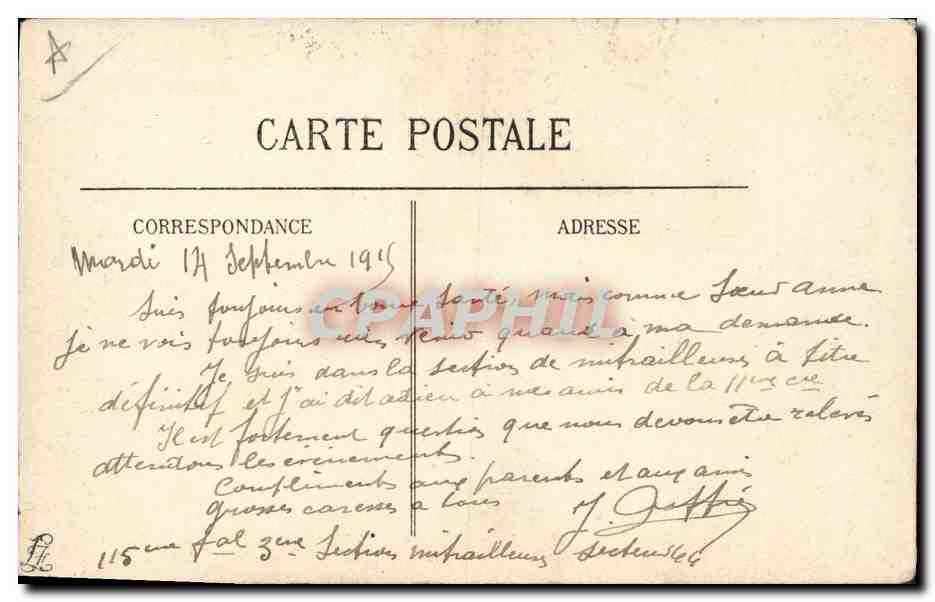 CARTE POSTALE
CORRESPONDANCE
ADRESSE
Mardi 14 Septembre 1915
Suis toujours en bonne santé, mais comme Sœur Anne
je ne vois toujours rien venir quand à ma demande.
Je suis dans la section de mitrailleuses à titre
définitif et j'ai dit adieu à mes amis de la 11me cie
Il est fortement question que nous devons être relevés
attendons les événements.
Compliments aux parents et aux amis
grosses caresses à tous
J.
115me 3me Section mitrailleuses secteur 44
CPAPHIL